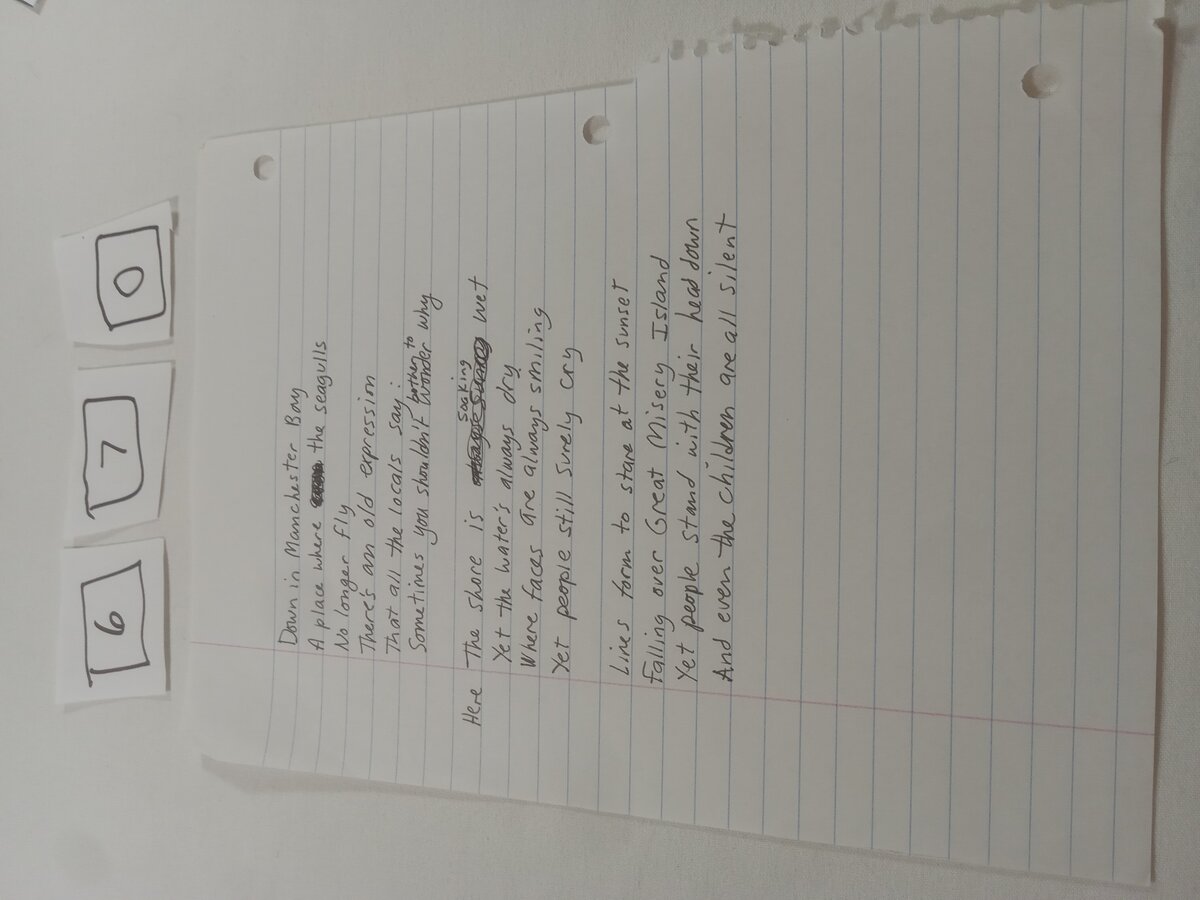 6 7 0
Down in Manchester Bay
A place where the seagulls
No longer fly
There's an old expression
That all the locals say:
Sometimes you shouldn't bother to wonder why
Here The shore is soaking wet
Yet the water's always dry
Where faces are always smiling
Yet people still surely cry
Lines form to stare at the sunset
Falling over Great Misery Island
Yet people stand with their head down
And even the children are all silent